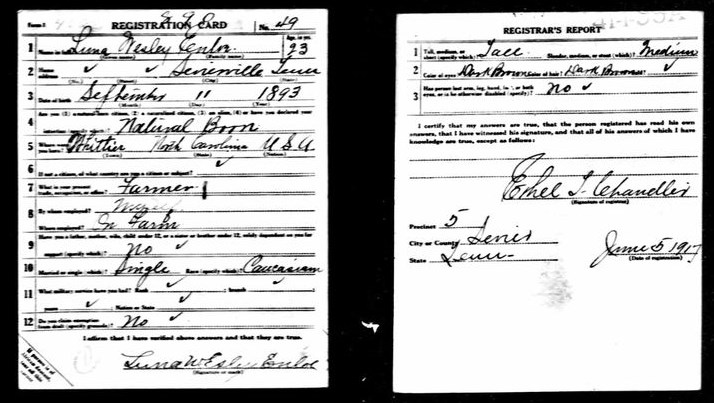 Form 1 REGISTRATION CARD No. 49
1 Name in full Luna Wesley Enloe Age, in yrs. 23
(Given name) (Family name)
2 Home address Sevierville Tenn
(No.) (Street) (City) (State)
3 Date of birth September 11 1893
(Month) (Day) (Year)
4 Are you (1) a natural-born citizen, (2) a naturalized citizen, (3) an alien, (4) or have you declared your
intention (specify which)? Natural Born
5 Where were you born? Whittier North Carolina U S A
(Town) (State) (Nation)
6 If not a citizen, of what country are you a citizen or subject?
7 What is your present trade, occupation, or office? Farmer
8 By whom employed? Myself
Where employed? On Farm
9 Have you a father, mother, wife, child under 12, or a sister or brother under 12, solely dependent on you for
support (specify which)? No
10 Married or single (which)? Single Race (specify which)? Caucasian
11 What military service have you had? Rank ; branch
years ; Nation or State
12 Do you claim exemption from draft (specify grounds)? No
I affirm that I have verified above answers and that they are true.
Luna Wesley Enloe
(Signature or mark)
If person is of African descent, tear off this corner
REGISTRAR'S REPORT
1 Tall, medium, or short (specify which)? Tall Slender, medium, or stout (which)? Medium
2 Color of eyes? Dark Brown Color of hair? Dark Brown
3 Has person lost arm, leg, hand, foot, or both
eyes, or is he otherwise disabled (specify)? No
I certify that my answers are true, that the person registered has read his own
answers, that I have witnessed his signature, and that all of his answers of which I have
knowledge are true, except as follows:
Ethel T. Chandler
(Signature of registrar)
Precinct 5
City or County Sevier
State Tenn
June 5 1917
(Date of registration)